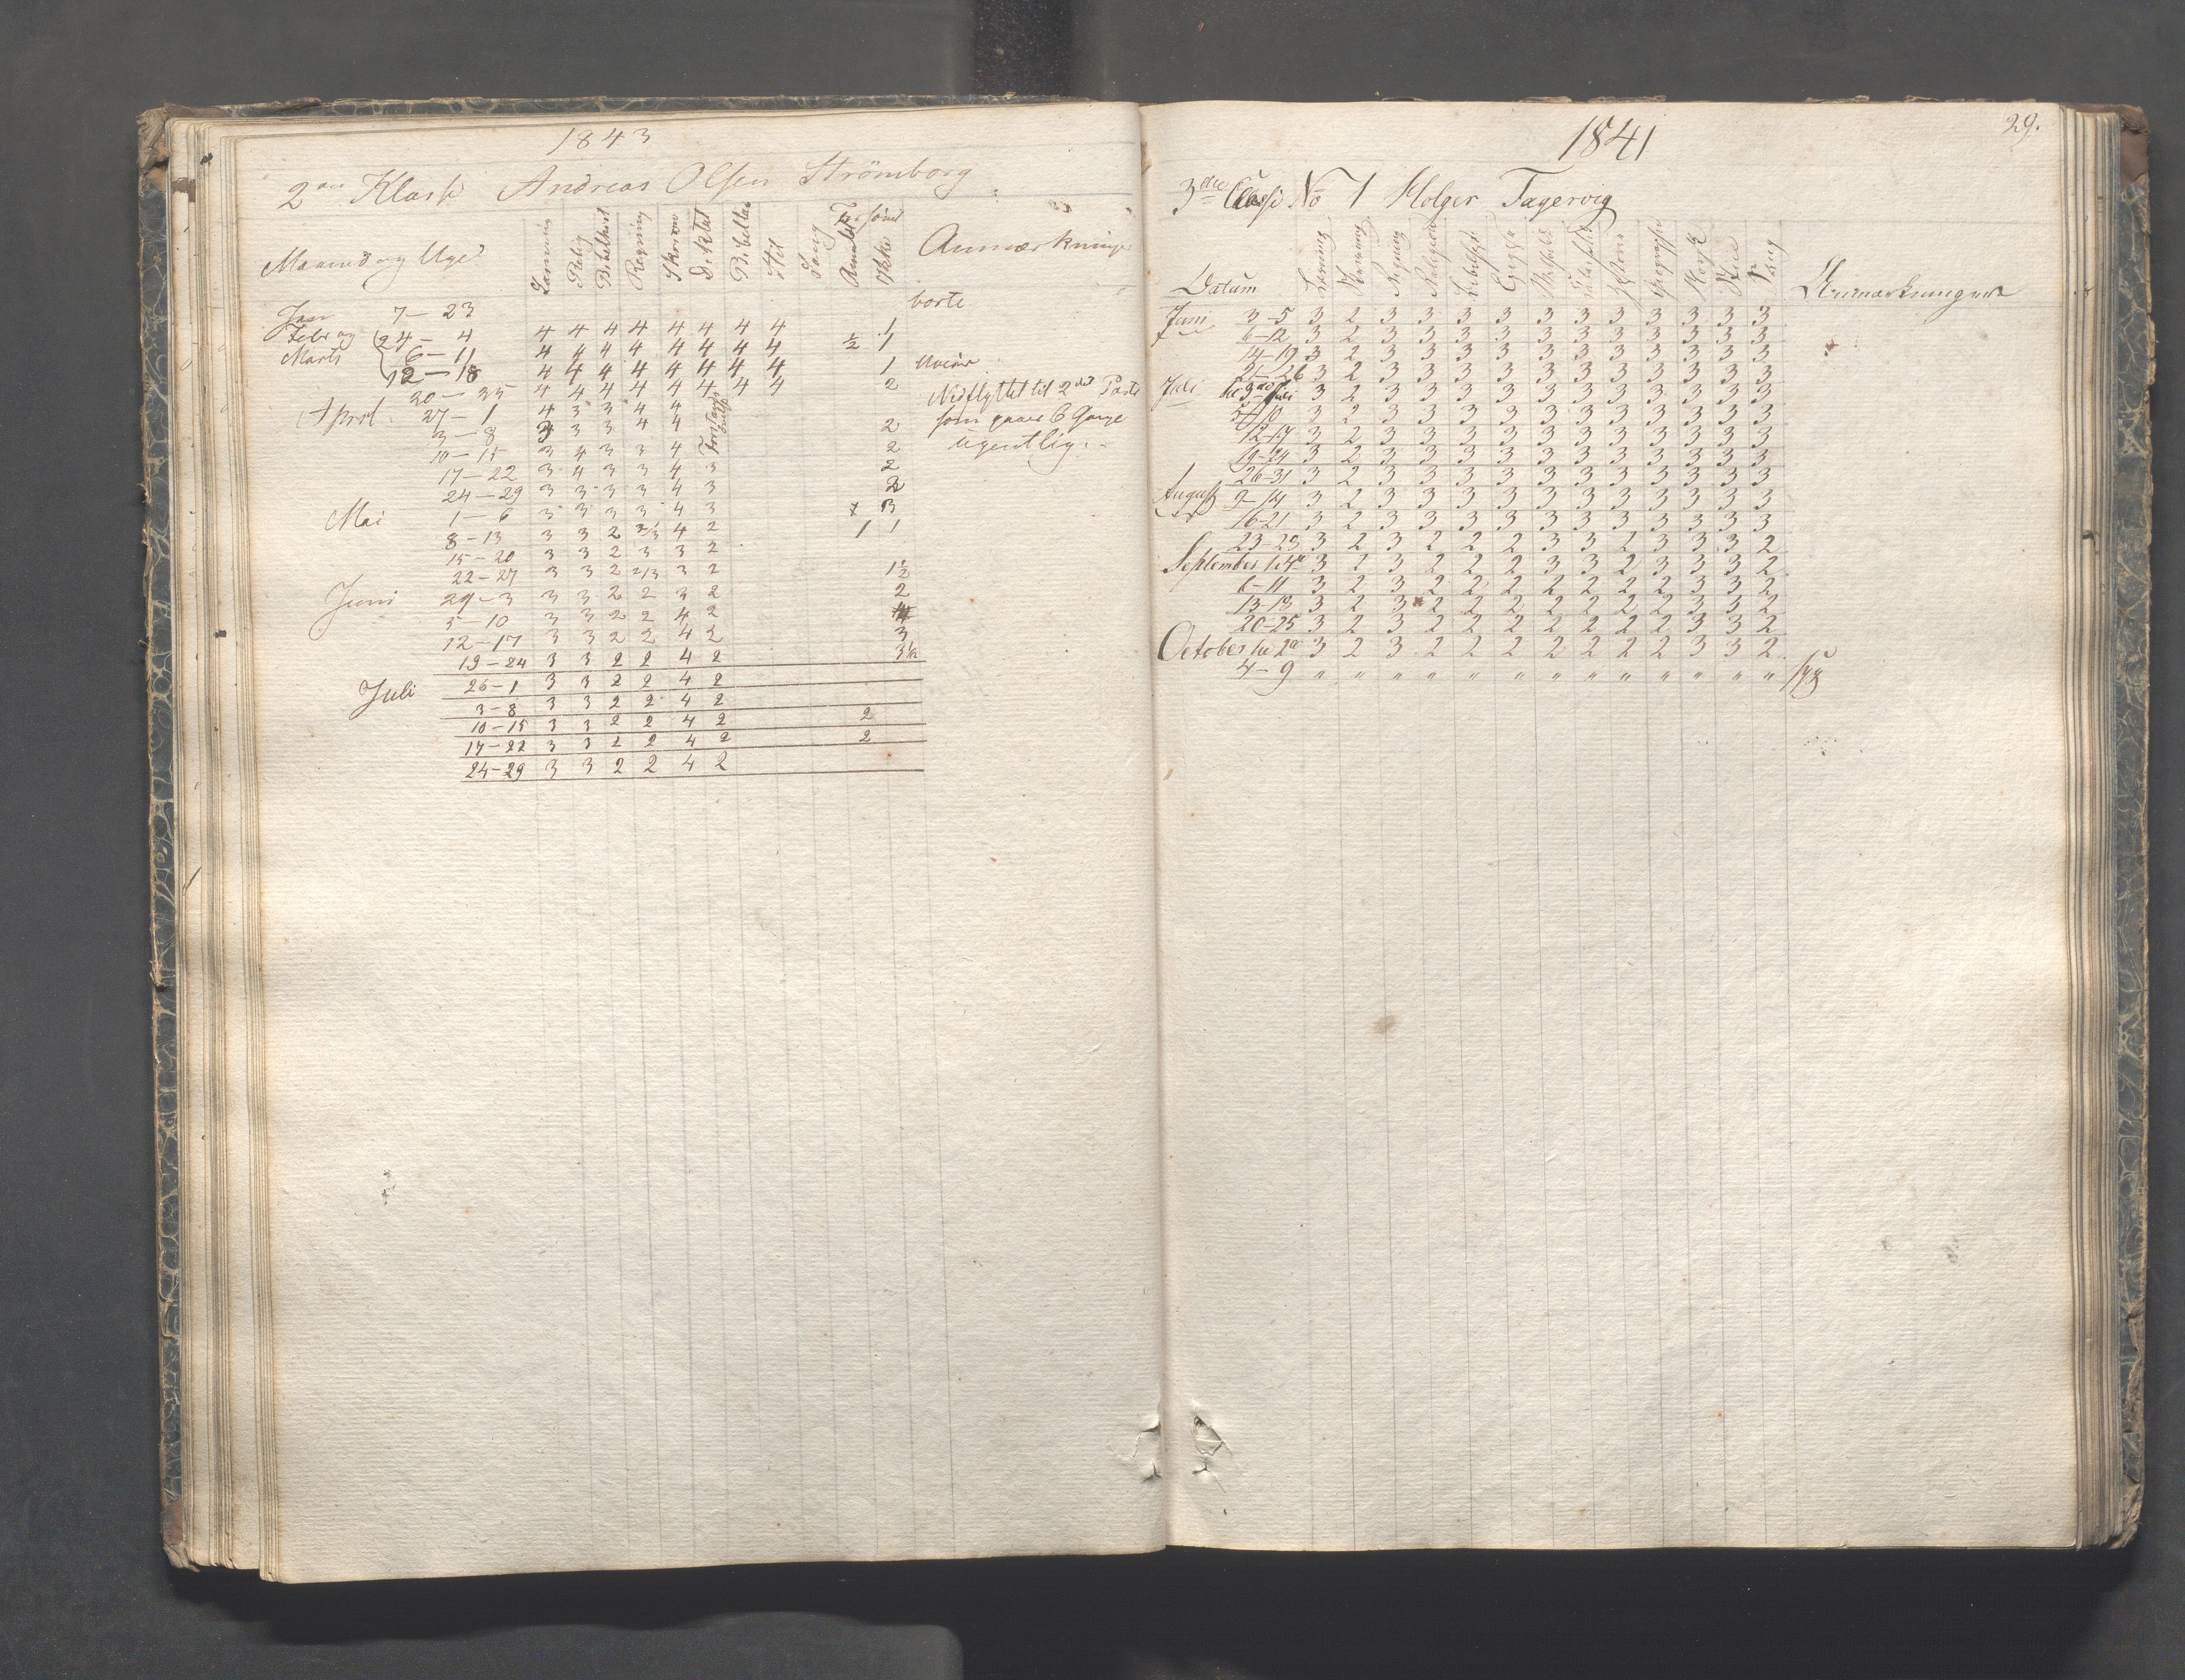 1843
2den Klasse Andreas Olsen Strömborg
Maaned og Uge Læsning Relig Bibelhist Regning Skrivn Diktat Sang Forsømt Anmeldt Ikke Anmærkninger
Jan 7-23 borte
Febr og 24-4 4 4 4 4 4 4 4 4 1
Marts 6-11 4 4 4 4 4 4 4 4 ½ 1
12-18 4 4 4 4 4 4 4 4 1
20-25 4 4 4 4 4 4 4 4 2 Nedflyttet til 2det Parti
April 27-1 4 3 3 4 4 som gaaer 6 Gange
3-8 3 3 3 4 4 2 ugentlig.
10-15 3 4 3 3 4 2
17-22 3 4 3 3 4 3 2
24-29 3 3 3 3 4 3 2
Mai 1-6 3 3 3 3 4 3 3
8-13 3 3 2 2/3 4 2 1 1
15-20 3 3 2 3 3 2
22-27 3 3 2 2/3 3 2 1½
Juni 29-3 3 3 2 2 3 2 2
5-10 3 3 2 2 4 2
12-17 3 3 2 2 4 2 3
19-24 3 3 2 2 4 2 3½
Juli 26-1 3 3 2 2 4 2
3-8 3 3 2 2 4 2
10-15 3 3 2 2 4 2 2
17-22 3 3 2 2 4 2 2
24-29 3 3 2 2 4 2
29.
1841
3die Classe No 1 Holger Tagervig
Datum Læsning Skrivning Regning Religion Geographie Sang Anmærkninger
Juni 3-5 3 2 3 3 3 3 3 3 3 3 3 3 3
6-12 3 2 3 3 3 3 3 3 3 3 3 3 3
14-19 3 2 3 3 3 3 3 3 3 3 3 3 3
21-26 3 2 3 3 3 3 3 3 3 3 3 3 3
Juli 3 2 3 3 3 3 3 3 3 3 3 3 3
5-10 3 2 3 3 3 3 3 3 3 3 3 3 3
12-17 3 2 3 3 3 3 3 3 3 3 3 3 3
19-24 3 2 3 3 3 3 3 3 3 3 3 3 3
26-31 3 2 3 3 3 3 3 3 3 3 3 3 3
August 9-14 3 2 3 3 3 3 3 3 3 3 3 3 3
16-21 3 2 3 3 3 3 3 3 3 3 3 3 3
23-25 3 2 3 2 2 2 3 3 2 3 3 3 2
September 3 2 3 2 2 2 3 3 2 3 3 3 2
6-11 3 2 3 2 2 2 2 2 2 2 3 3 2
13-18 3 2 3 2 2 2 2 2 2 2 3 3 2
20-25 3 2 3 2 2 2 2 2 2 2 3 3 2
October 3 2 3 2 2 2 2 2 2 2 3 3 2
4-9 " " " " " " " " " " " " " syg